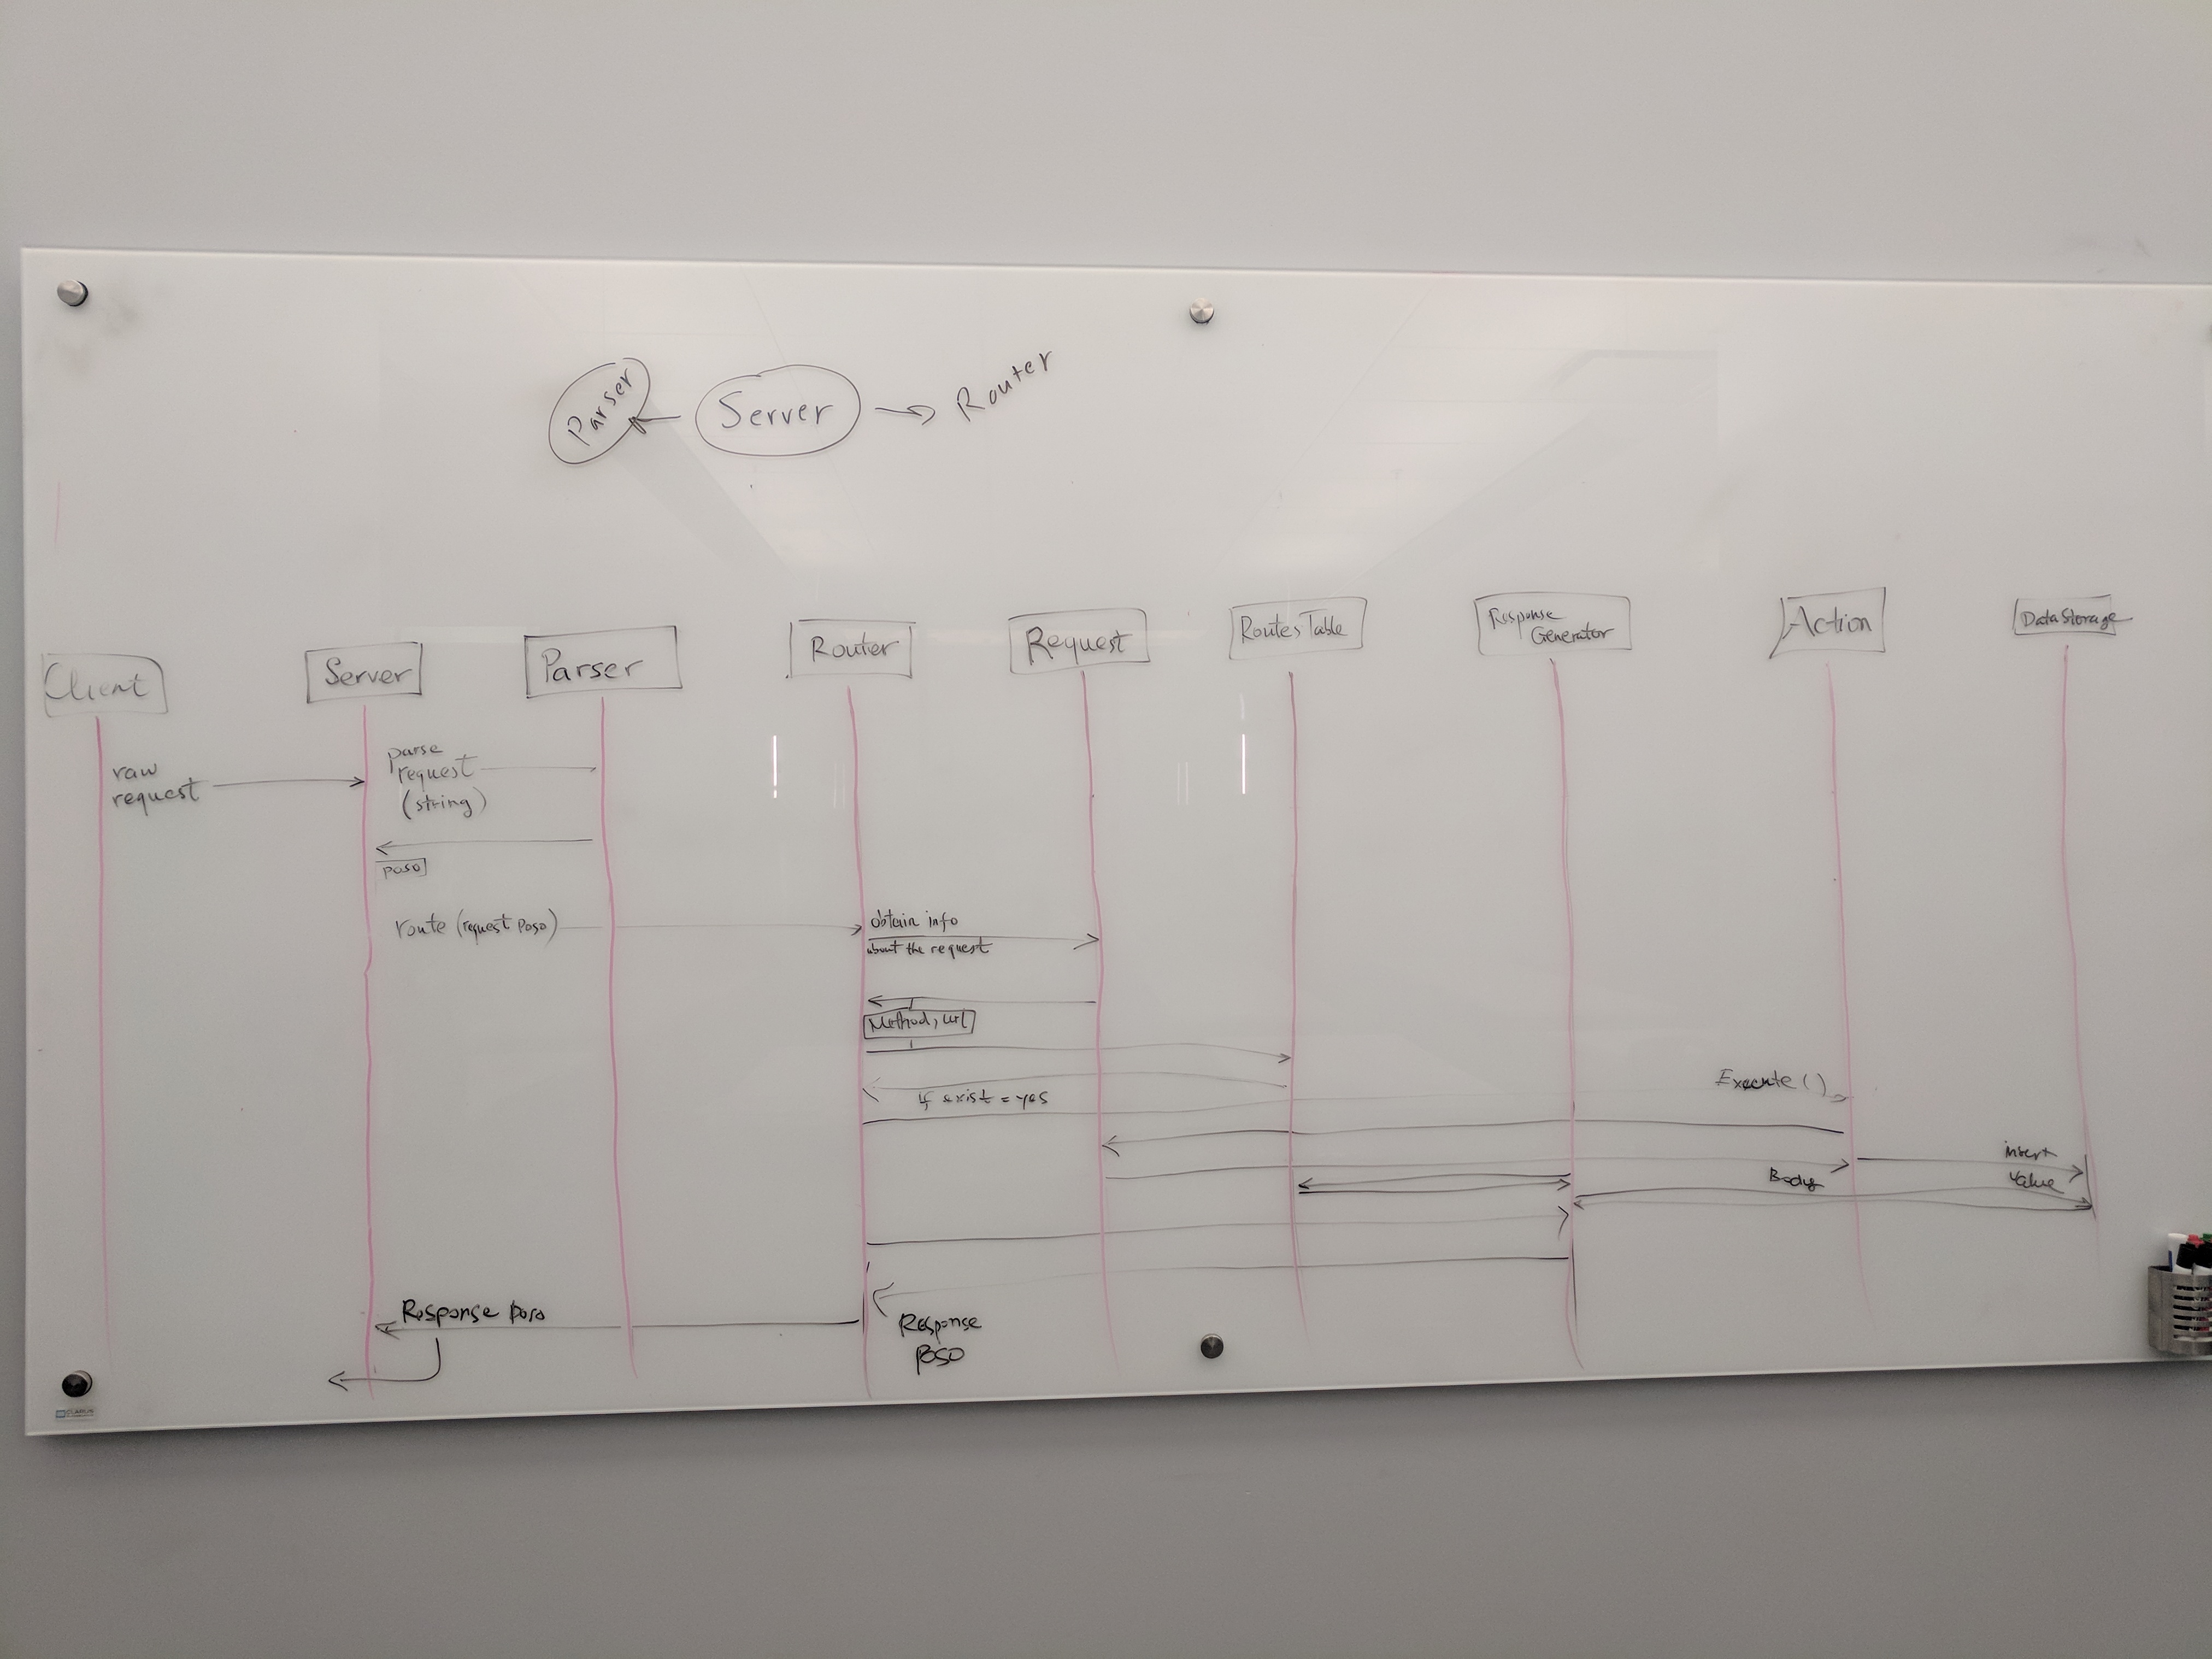 Parser
Server
Router
Client
Server
Parser
Router
Request
Routes Table
Response
Generator
Action
Data Storage
raw
request
parse
request
(string)
poso
route (request Poso)
obtain info
about the request
Method, url
if exist = yes
Execute ( )
Body
insert
value
Response poso
Response
poso
CLARUS